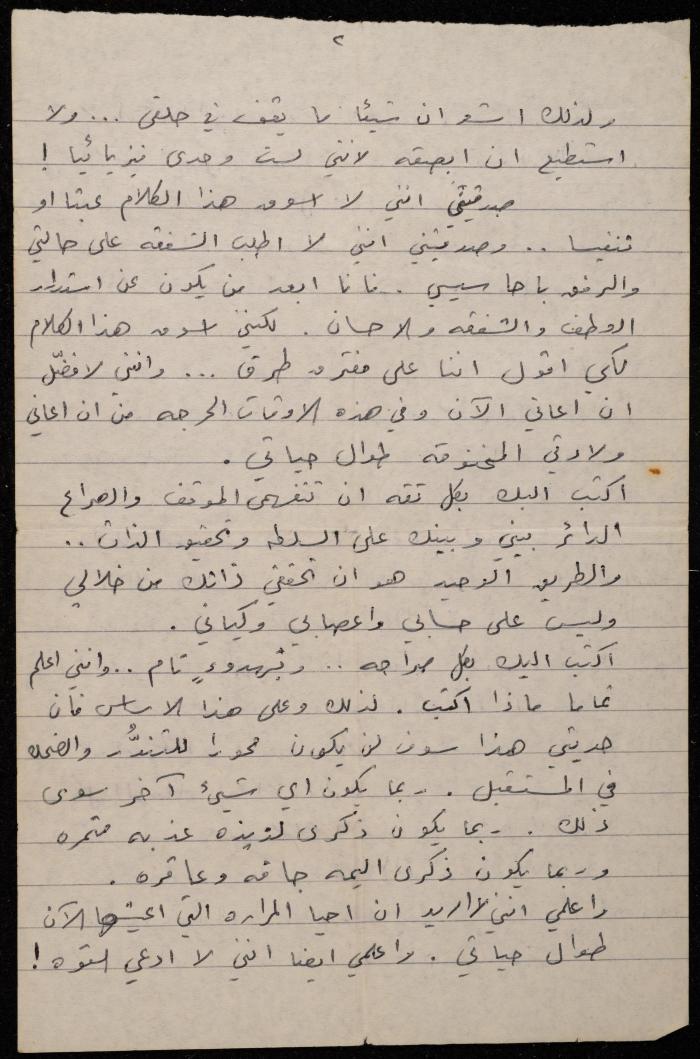 ٢
ولذلك اشعر ان شيئا ما يقف في حلقي ... ولا
استطيع ان ابصقه لانني لست وحدي فيزيائيا !
صدقيني انني لا اسوق هذا الكلام عبثا او
تنفيسا .. وصدقيني انني لا اطلب الشفقه على حالتي
والرفق باحاسيسي . فانا ابعد من يكون عن استدرار
العطف والشفقه والاحسان . لكنني اسوق هذا الكلام
لكي اقول اننا على مفترق طرق ... وانني لافضّل
ان اعاني الآن وفي هذه الاوقات الحرجه من ان اعاني
ولادتي المخنوقه طوال حياتي .
اكتب اليك بكل ثقه ان تتفهمي الموقف والصراع
الدائر بيني وبينك على السلطه وتحقيق الذات ..
والطريق الوحيد هو ان تحققي ذاتك من خلالي
وليس على حسابي واعصابي وكياني .
اكتب اليك بكل صراحه .. وبهدوءٍ تام .. وانني اعلم
تماما ماذا اكتب . لذلك وعلى هذا الاساس فان
حديثي هذا سوف لن يكون محورا للتندُّر والضحك
في المستقبل . ربما يكون اي شيئ آخر سوى
ذلك . ربما يكون ذكرى لذيذه عذبه مثمره
وربما يكون ذكرى اليمه جافه وعاقره .
واعلمي انني لا اريد ان احيا المراره التي اعيشها الآن
طوال حياتي . واعلمي ايضا انني لا ادعي القوه !